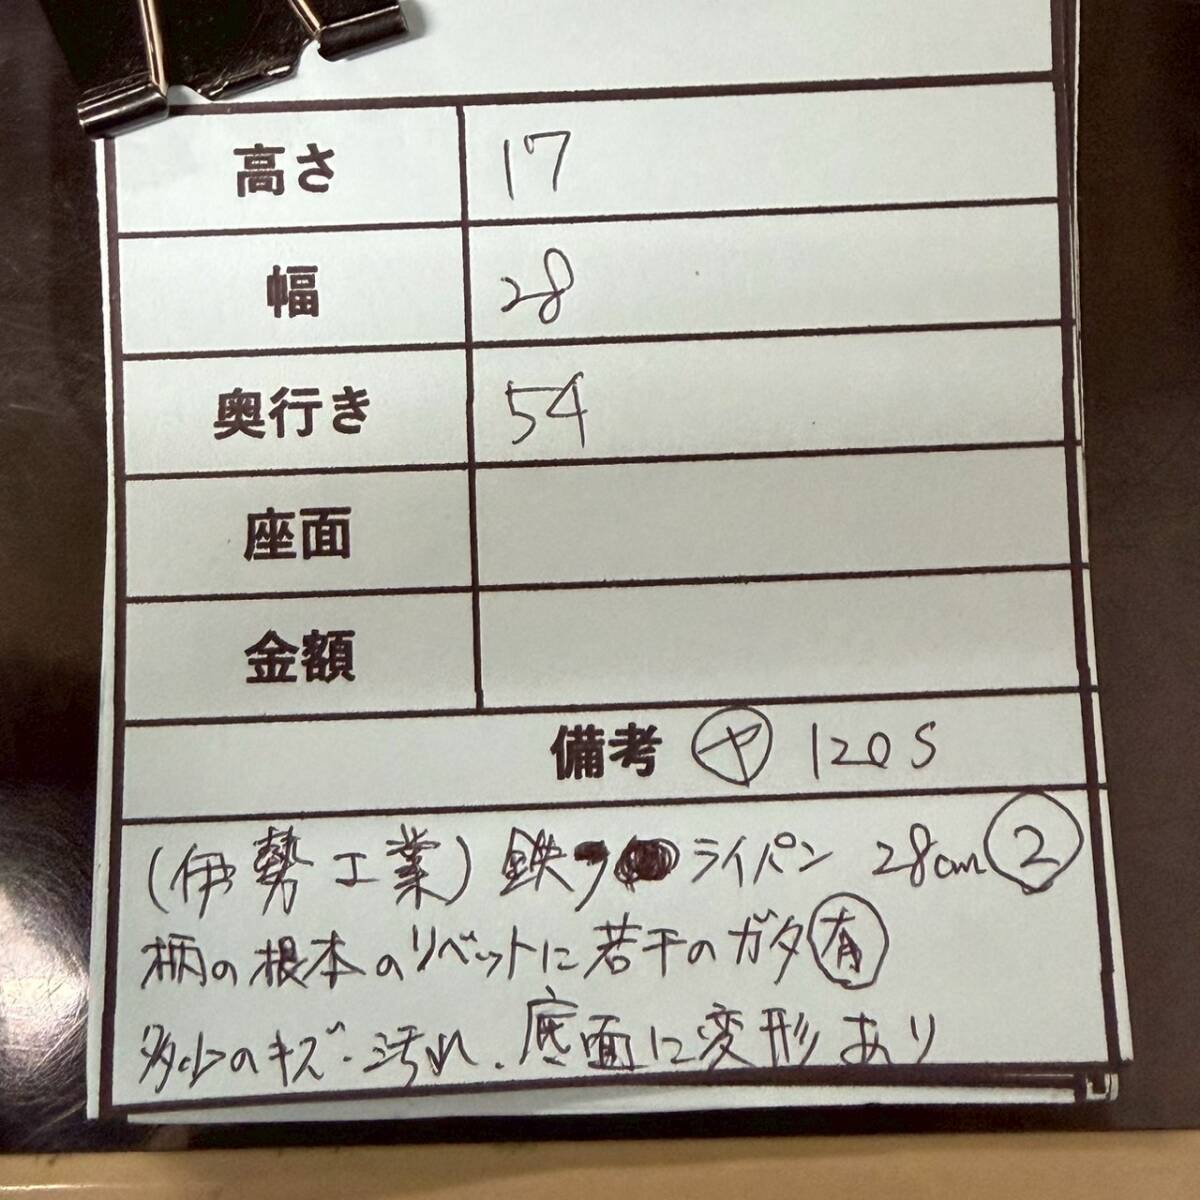 高さ 17
幅 28
奥行き 54
座面
金額
備考 ヤ 120S
(伊勢工業) 鉄フライパン 28cm 2
柄の根本のリベットに若干のガタ有
多少のキズ・汚れ、底面に変形あり